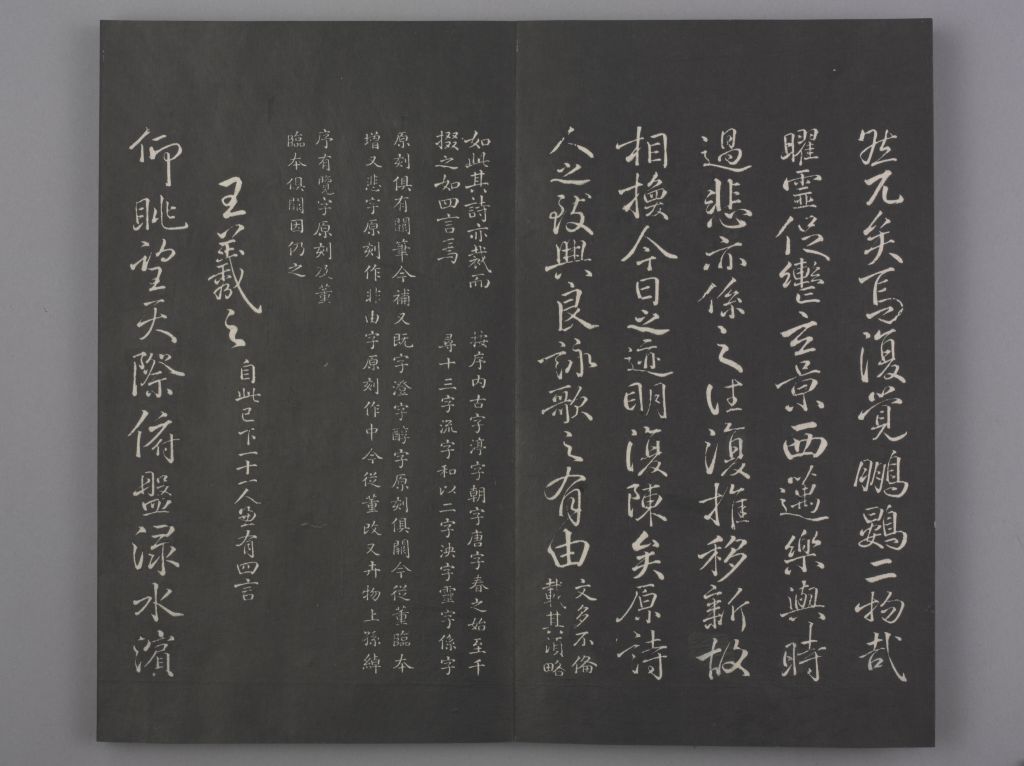 然兀矣焉復覺鵬鷃二物哉
曜靈促轡玄景西邁樂與時
過悲亦係之往復推移新故
相換今日之迹明復陳矣原詩
人之致興良詠歌之有由 文多不俻
載其略
如此其詩亦裁而
掇之如四言焉
按序内古字淳字朝字唐字春之始至千
尋十三字流字和以二字泱字靈字係字
原刻俱有闕筆今補又既字澄字醇字原刻俱闕今從董臨本
增又悲字原刻作非由字原刻作中今從董改又卉物上孫綽
序有覽字原刻及董
臨本俱闕因仍之
王羲之 自此已下一十一人各有四言
仰眺望天際俯盤淥水濱